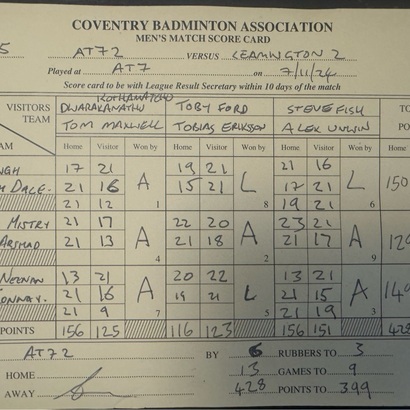 COVENTRY BADMINTON ASSOCIATION
MEN'S MATCH SCORE CARD
5 AT72 VERSUS LEAMINGTON 2
Played at AT7 on 7/11/24
Score card to be with League Result Secretary within 10 days of the match
VISITORS TEAM DWARAKANATH TOBY FORD STEVE FISH TO
TOM MAXWELL TOBIAS ERIKSSON ALEX UNWIN PO
AM Home Visitor Won by Home Visitor Won by Home Visitor Won by
NGH 17 21 19 21 21 16
DALE. 21 16 A 15 21 L 17 21 L 150
21 12 1 8 19 21 6
MISTRY 21 17 22 20 23 21
ARSHAD 21 13 A 21 18 A 21 17 A 129
4 2 9
13 21 20 22 13 21
21 16 A 19 21 L 21 15 A 149
21 9 7 5 21 19 3
POINTS 156 125 116 123 156 151 428
AT72 BY 6 RUBBERS TO 3
HOME 13 GAMES TO 9
AWAY 428 POINTS TO 399